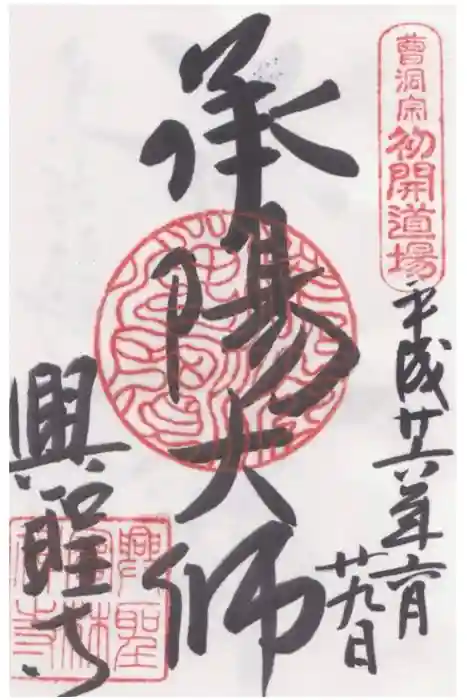 曹洞宗初開道場
平成廿六年六月
廿九日
承陽大師
興聖寺